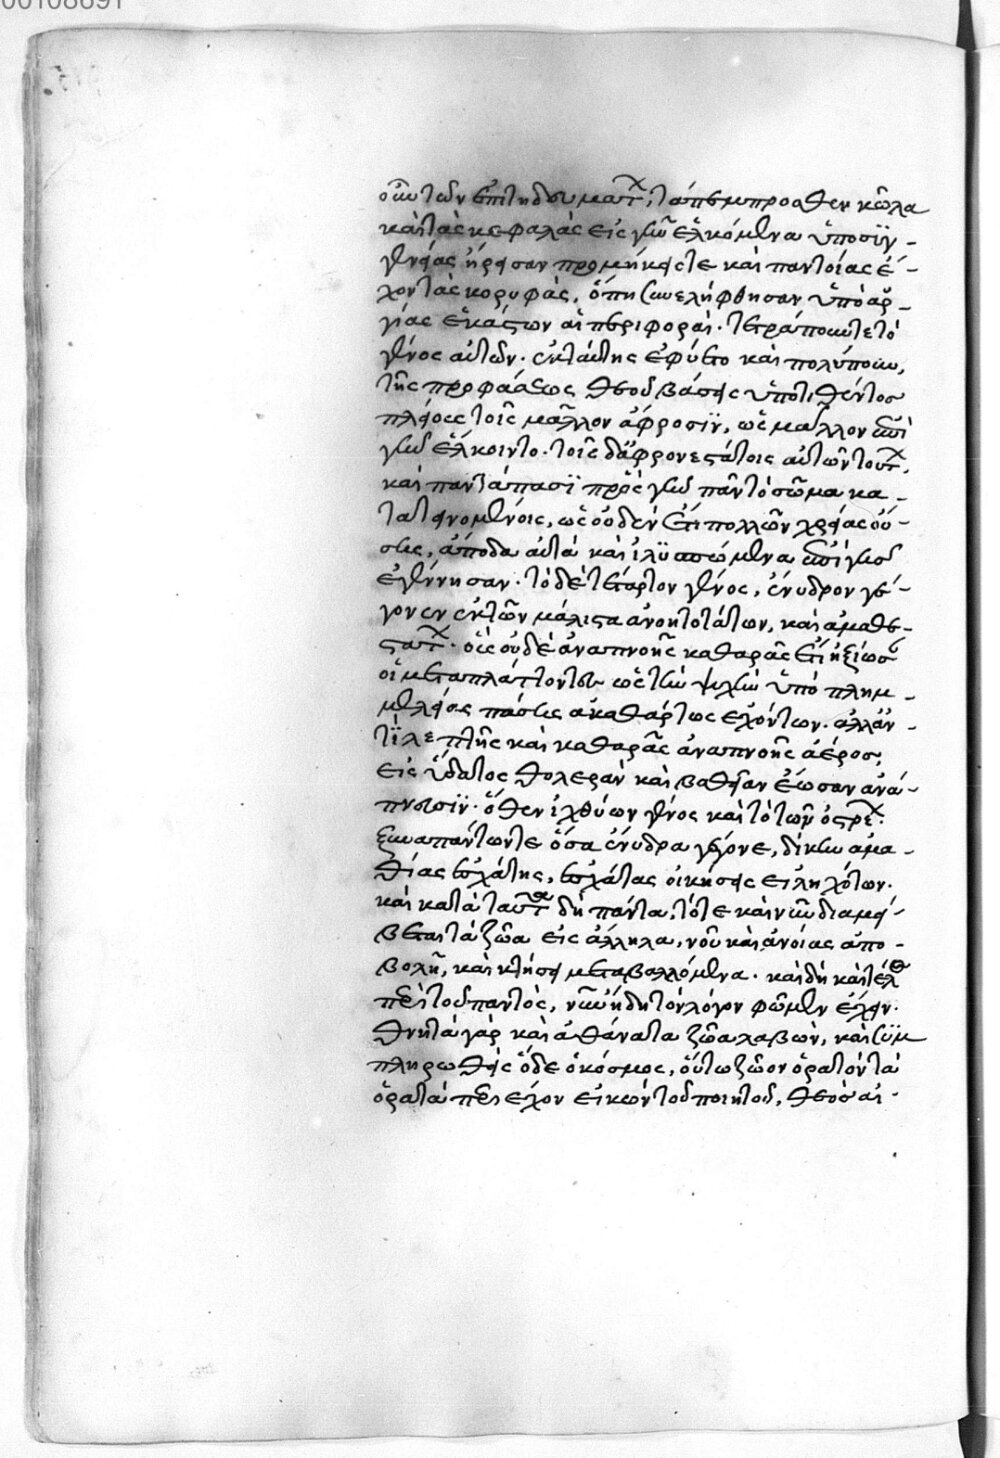 00108691
οὖν τῶν ἐπιτηδευμάτων, τά τ' ἔμπροσθεν κῶλα
καὶ τὰς κεφαλὰς εἰς γῆν ἑλκόμενα ὑπὸ συγ-
γενείας ἤρεισαν προμήκεις τε καὶ παντοίας ἔ-
χοντας κορυφὰς, ὅπῃ συνελήφθησαν ὑπὸ ἀρ-
γίας ἑκάστων αἱ περιφοραί. τετράπουν τε τὸ
γένος αὐτῶν. ἐκ ταύτης ἐφύετο καὶ πολύπουν,
τῆς προφάσεως θεοῦ βάσεις ὑποτιθέντος
πλείους τοῖς μᾶλλον ἄφροσιν, ὡς μᾶλλον ἐπὶ
γῆν ἕλκοιντο. τοῖς δ' ἀφρονεστάτοις αὐτῶν τούτων,
καὶ παντάπασι πρὸς γῆν πᾶν τὸ σῶμα κα-
τατεινομένοις, ὡς οὐδὲν ἔτι ποδῶν χρείας οὔ-
σης, ἄποδα αὐτὰ καὶ ἰλυσπώμενα ἐπὶ γῆς
ἐγέννησαν. τὸ δὲ τέταρτον γένος, ἔνυδρον γέ-
γονεν ἐκ τῶν μάλιστα ἀνοητοτάτων, καὶ ἀμαθε-
στάτων. οὓς οὐδὲ ἀναπνοῆς καθαρᾶς ἔτι ἠξίωσαν
οἱ μεταπλάττοντες ὡς τὴν ψυχὴν ὑπὸ πλημ-
μελείας πάσης ἀκαθάρτως ἐχόντων. ἀλλ' ἀν-
τὶ λεπτῆς καὶ καθαρᾶς ἀναπνοῆς ἀέρος,
εἰς ὕδατος θολερὰν καὶ βαθεῖαν ἔωσαν ἀνά-
πνευσιν. ὅθεν ἰχθύων γένος καὶ τὸ τῶν ὀστρέων
ξυναπάντων τε ὅσα ἔνυδρα γέγονε, δίκην ἀμα-
θίας ἐσχάτης, ἐσχάτας οἰκήσεις εἰληχότων.
καὶ κατὰ ταῦτα δὴ πάντα, τότε καὶ νῦν διαμεί-
βεται τὰ ζῶα εἰς ἄλληλα, νοῦ καὶ ἀνοίας ἀπο-
βολῇ, καὶ κτήσει μεταβαλλόμενα. καὶ δὴ καὶ τέλος
περὶ τοῦ παντὸς, νῦν ἤδη τὸν λόγον φῶμεν ἔχειν.
θνητὰ γὰρ καὶ ἀθάνατα ζῶα λαβὼν, καὶ συμ
πληρωθεὶς ὅδε ὁ κόσμος, οὕτω ζῶον ὁρατὸν τὰ
ὁρατὰ περιέχον εἰκὼν τοῦ ποιητοῦ, θεὸς αἰ-